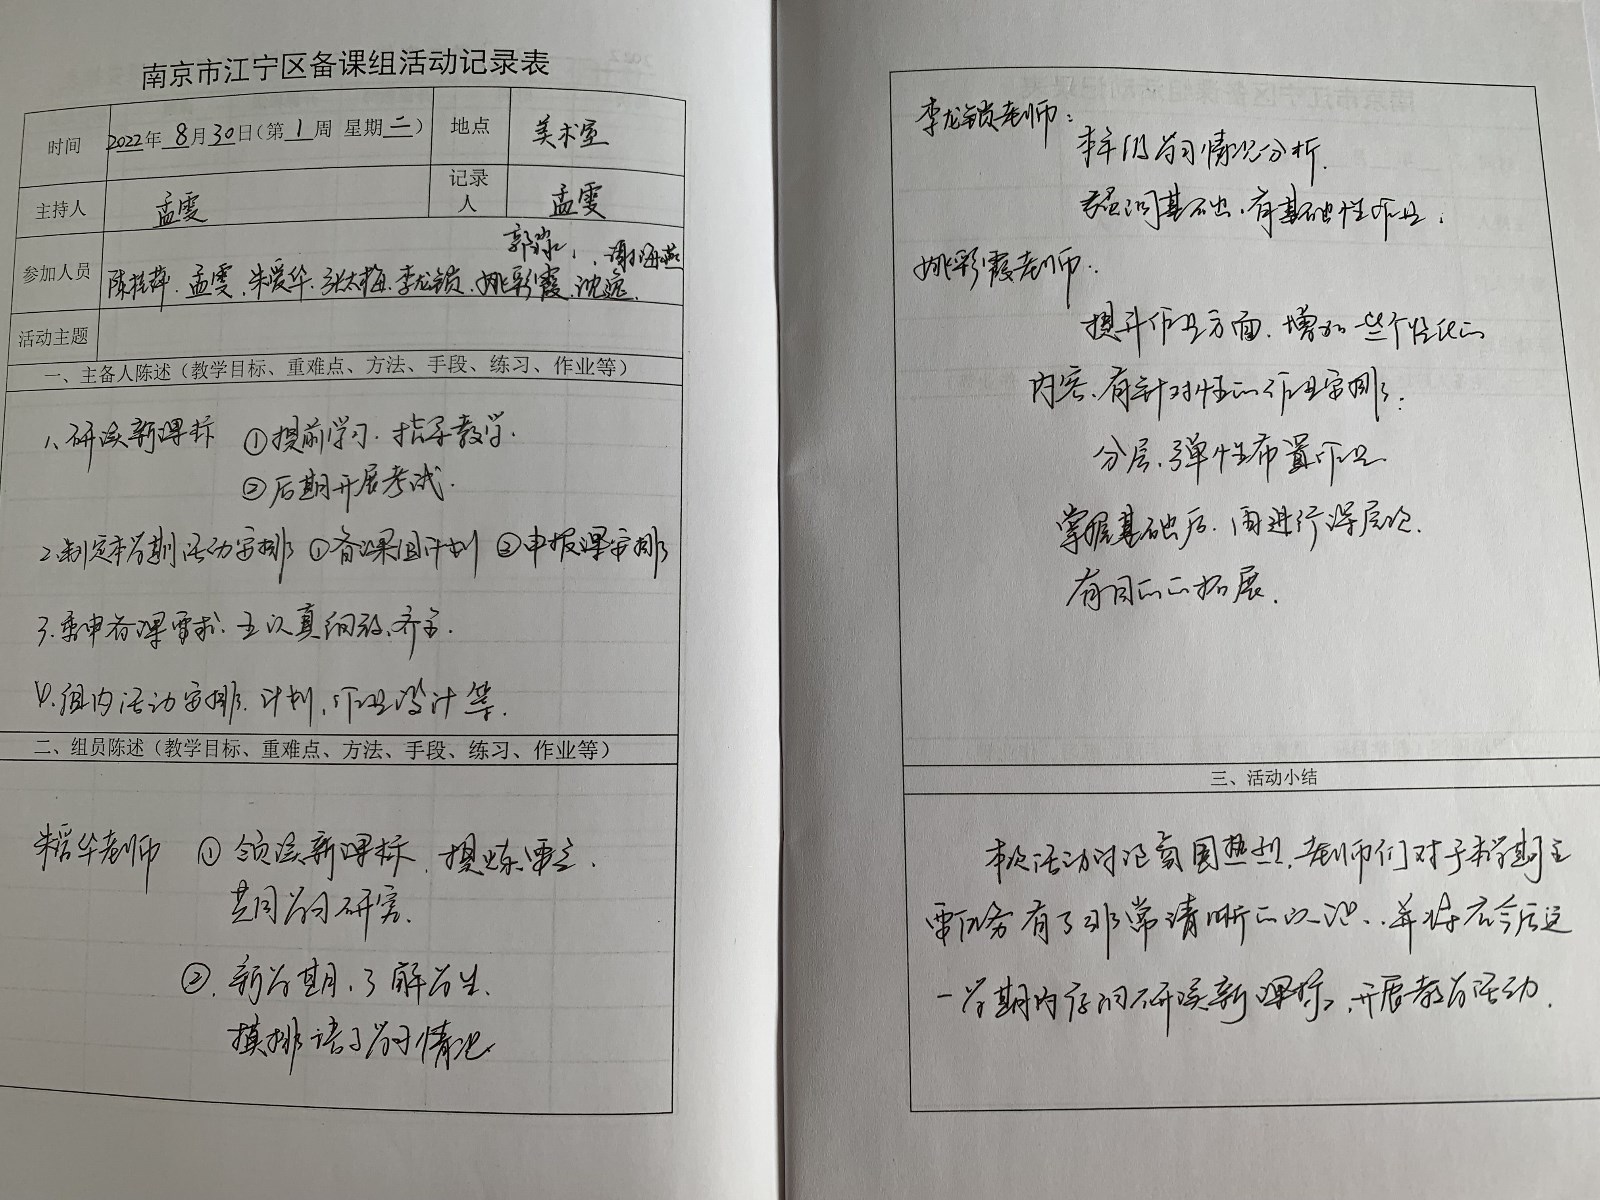 南京市江宁区备课组活动记录表
时间 2022年 8月30日(第1周 星期二) 地点 美术室
主持人 孟雯 记录人 孟雯
郭 谢海燕
参加人员 陈桂萍、孟雯、朱爱华、张太梅、李龙锁、姚彩霞、沈逸
活动主题
一、主备人陈述(教学目标、重难点、方法、手段、练习、作业等)
1、研读新课标 ①提前学习、指导教学.
②后期开展考试.
2.制定本学期活动安排 ①备课组计划 ②申报课安排
3.重申备课要求、认真细致、齐全.
4.组内活动安排、计划,作业设计等.
二、组员陈述(教学目标、重难点、方法、手段、练习、作业等)
朱爱华老师 ①领读新课标、提炼要点.
共同学习研究.
②.新学期、了解学生、
摸排孩子学习情况
李龙锁老师:
本年级学习情况分析.
强调基础、有基础性作业.
姚彩霞老师:
提升作业方面、增加一些个性化的
内容、有针对性的作业安排.
分层、弹性布置作业
掌握基础后、再进行深层次、
有目的的拓展.
三、活动小结
本次活动讨论氛围热烈、老师们对于本学期主
要任务有了非常清晰的认识、并将在今后这
一学期内仔细研读新课标,开展教学活动.